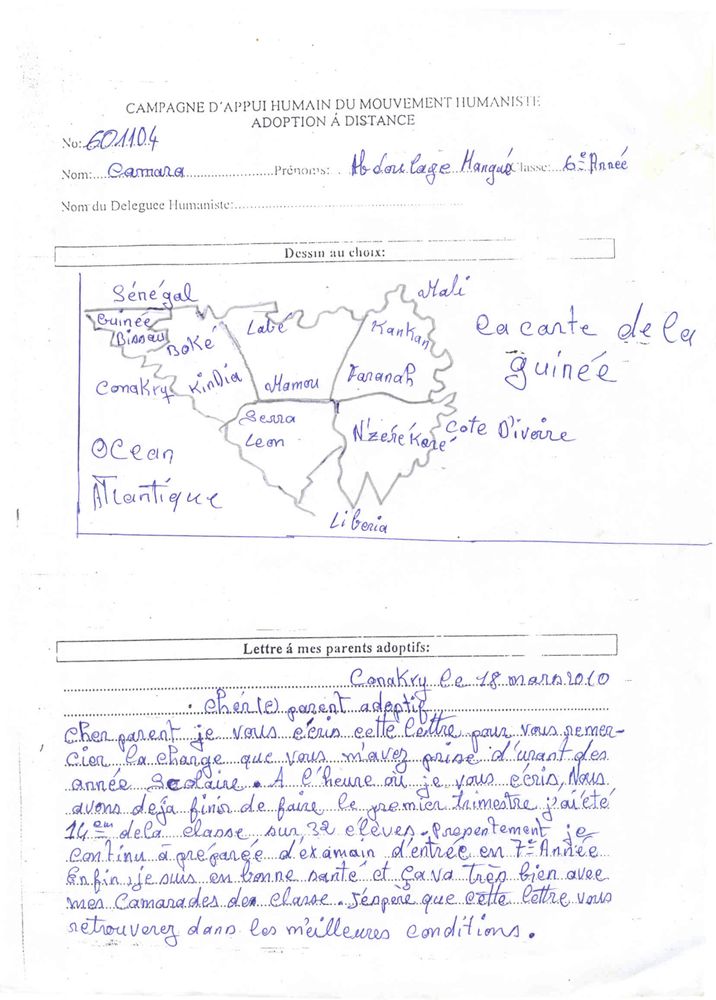 CAMPAGNE D'APPUI HUMAIN DU MOUVEMENT HUMANISTE
ADOPTION Á DISTANCE
No: 601104
Nom: Camara Prénoms: Abdoulage Mangué Classe: 6e Année
Nom du Deleguee Humaniste:
Dessin au choix:
Sénégal
Mali
Guinée
Bissau
Boké
Labé
Kankan
la carte de la
guinée
Conakry
Kindia
Mamou
Faranah
Serra
Leon
N'zérékoré
Cote D'ivoire
Ocean
Atlantique
Liberia
Lettre á mes parents adoptifs:
Conakry le 18 mars 2010
. Chér(e) parent adoptif
Cher parent je vous écris cette lettre pour vous remer-
cier la charge que vous m'avez prise d'urant des
année Scolaire. A l'heure où je vous écris, Nous
avons deja finir de faire le premier trimestre j'ai été
14em dela classe sur 32 élèves. Prepentement je
continu à préparée d'éxamain d'entrée en 7e Année
Enfin, je suis en bonne santé et ça va très bien avec
mes Camarades de classe. J'éspère que cette lettre vous
retrouverez dans les meilleures conditions.